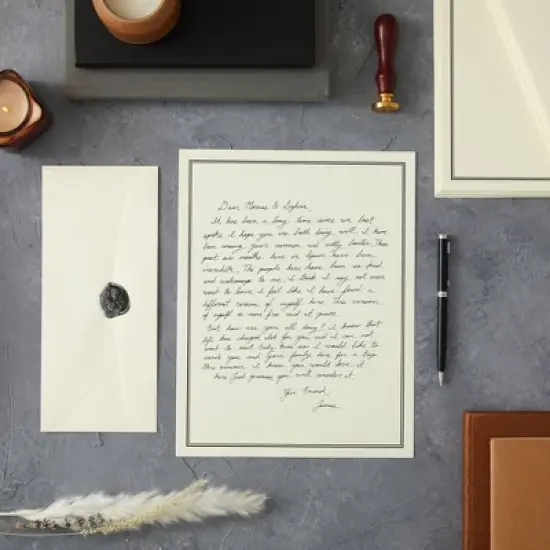 Dear Marcus & Sophie,
It has been a long time since we last
spoke. I hope you are both doing well. I have
been missing your and witty banter. These
past six months here in Spain have been
incredible. The people here have been so kind
and welcoming to me, I think I may not ever
want to leave. I feel like I have found a
different version of myself here. This version
of myself is more free and at peace.
But how are you all doing? I know that
life has changed alot for you and I can not
wait to visit. I would like to
invite you and your family here for a trip
this summer. I know you would love it
here. Just promise you will consider it.
Your Friend,
James